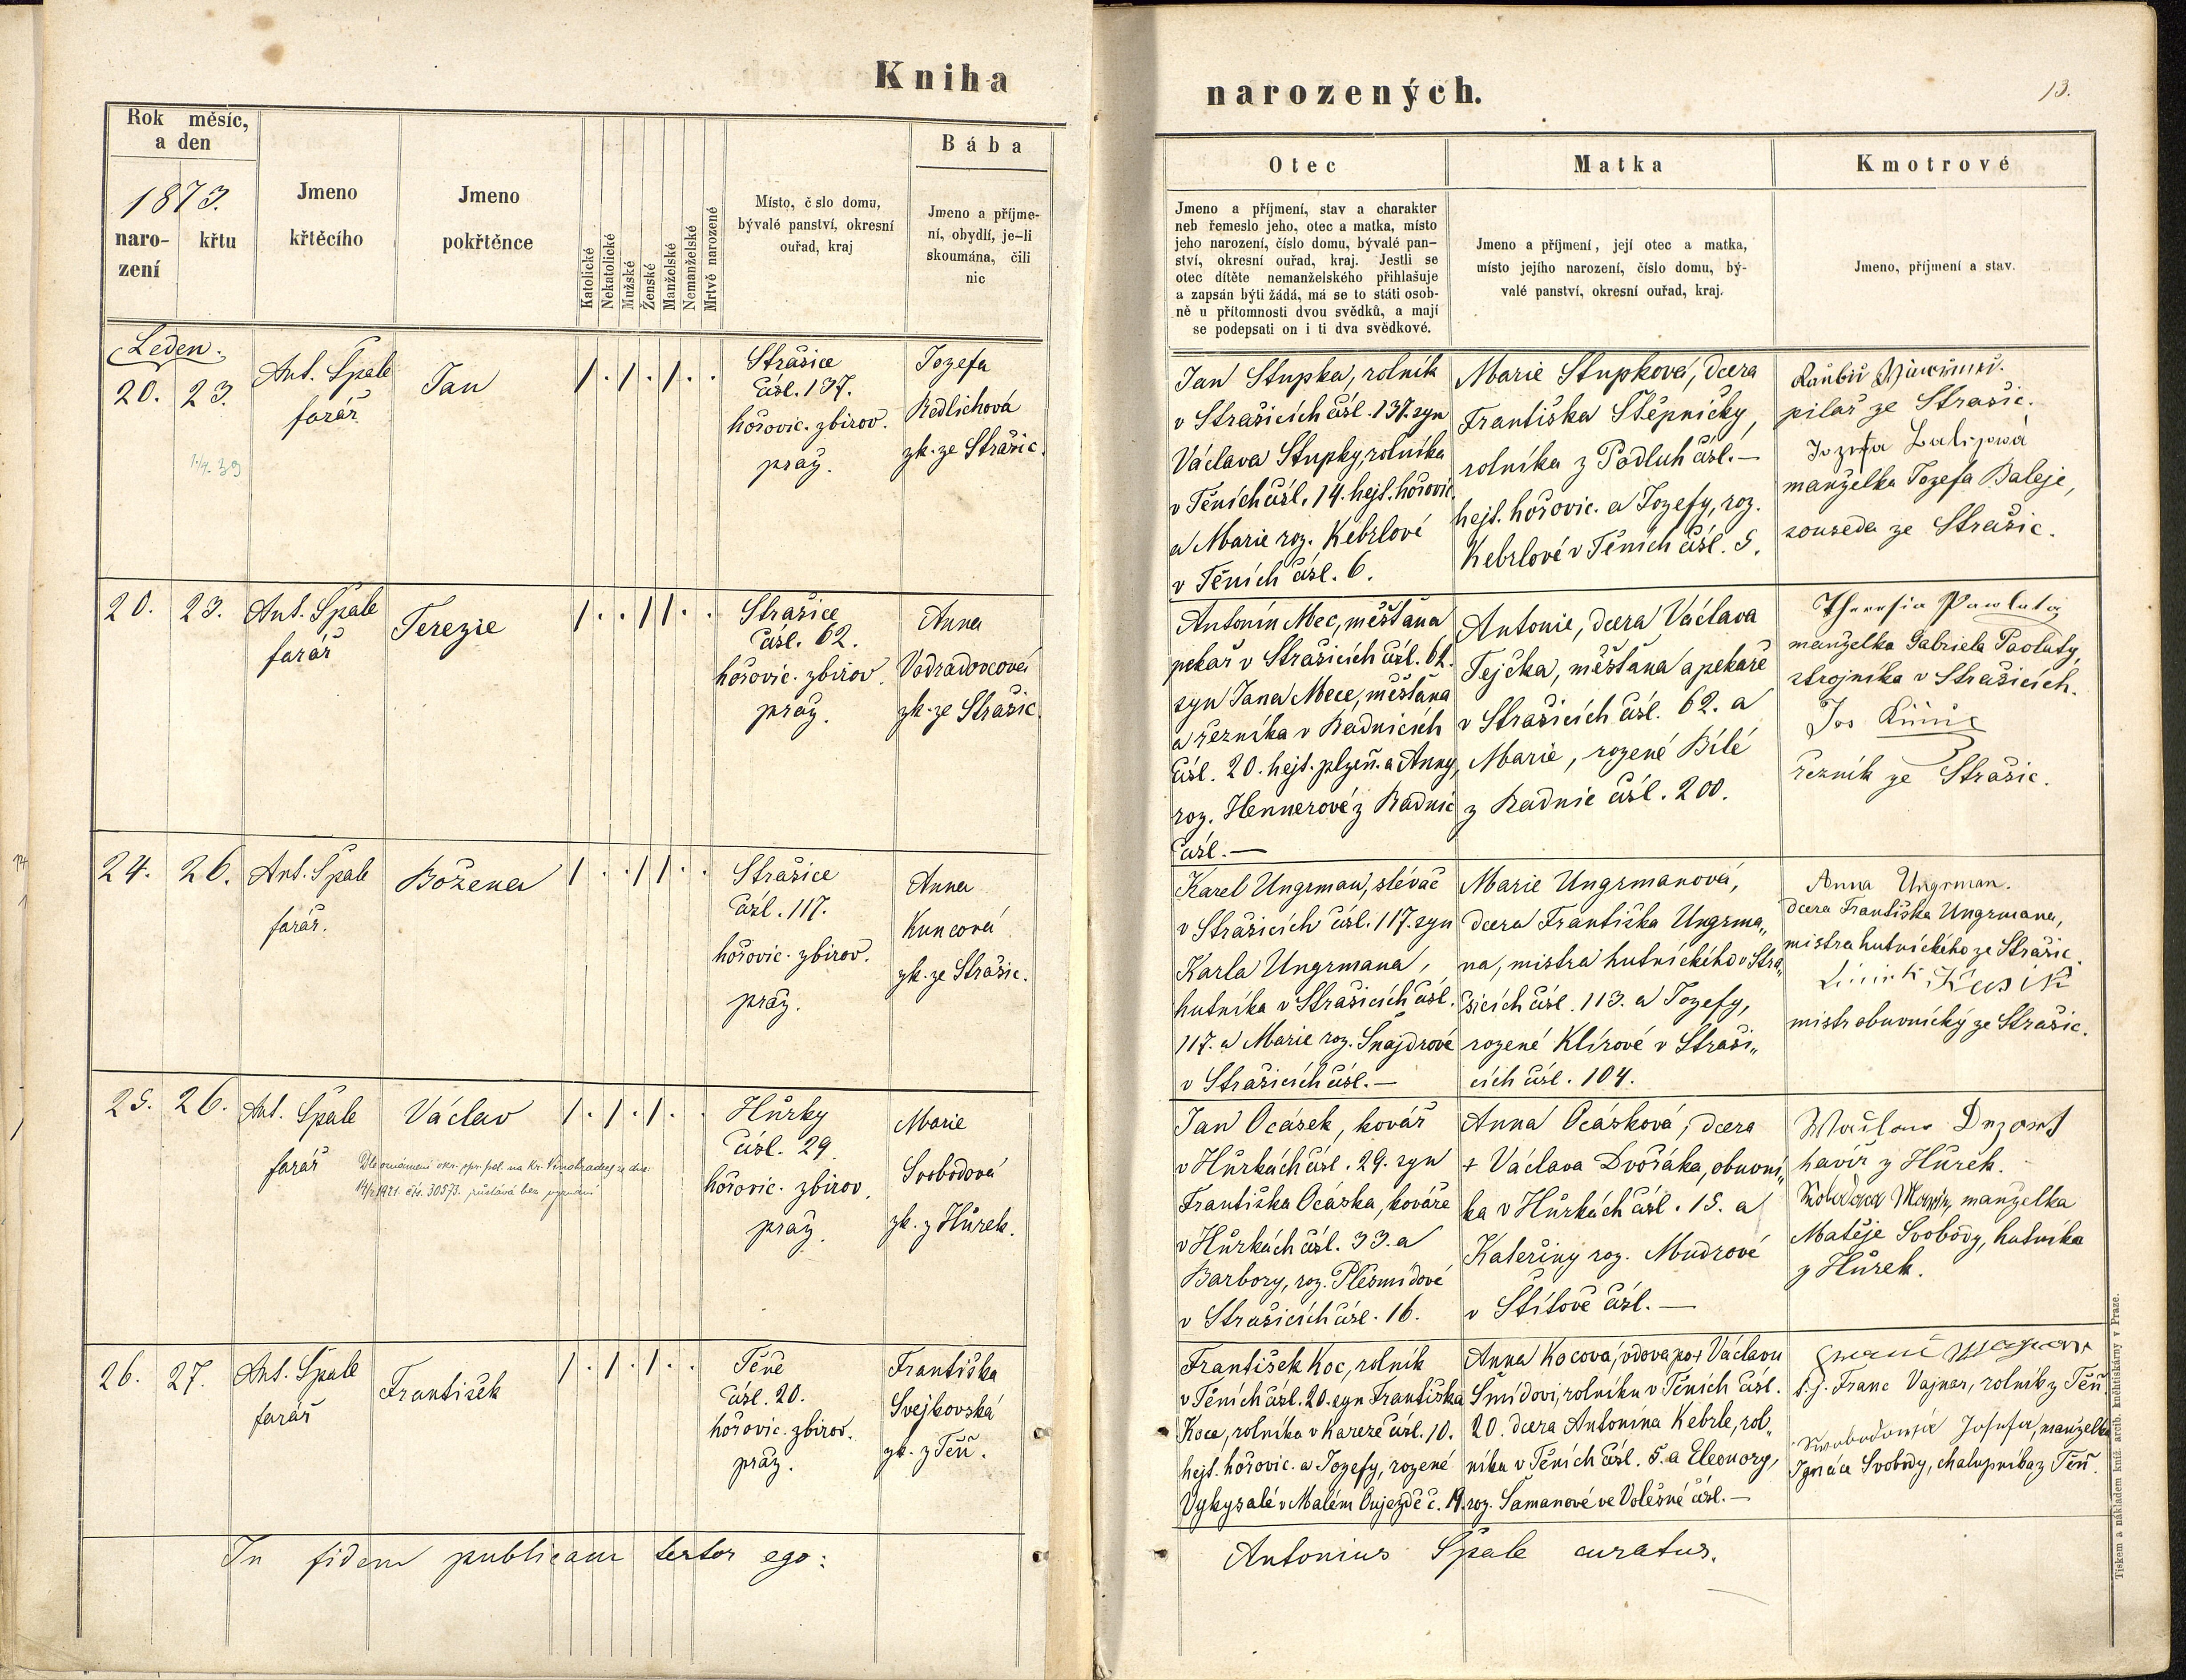 Kniha
Rok měsíc,
a den
1873.
naro-
zení
křtu
Jmeno
křtěcího
Jmeno
pokřtěnce
Katolické
Nekatolické
Mužské
Ženské
Manželské
Nemanželské
Mrtvě narozené
Místo, č slo domu,
bývalé panství, okresní
ouřad, kraj
Bába
Jmeno a příjme-
ní, obydlí, je-li
skoumána, čili
nic
Leden.
20. 23.
Ant. Špale
farář
Jan
/ . / . / . .
Strašice
čísl. 137.
hořovic. zbirov.
praž.
Jozefa
Redlichová
zk. ze Strašic.
20. 23.
Ant. Špale
farář
Terezie
/ . . / / . .
Strašice
čísl. 62.
hořovic. zbirov.
praž.
Anna
Vodradovcová
zk. ze Strašic.
24. 26.
Ant. Špale
farář.
Božena
/ . . / / . .
Strašice
čísl. 117.
hořovic. zbirov.
praž.
Anna
Kuncová
zk. ze Strašic.
25. 26.
Ant. Špale
farář
Václav
Dle oznámení okr. spr. pol. na Kr. Vinohradech ze dne
14/2 1921 čís. 30573. zůstává bez vyznání
/ . / . / . .
Hůrky
čísl. 29.
hořovic. zbirov.
praž.
Marie
Svobodová
zk. z Hůrek.
26. 27.
Ant. Špale
farář
František
/ . / . / . .
Těně
čísl. 20.
hořovic. zbirov.
praž.
Františka
Svejkovská
zk. z Těň.
In fidem publicam testor ego:
narozených.
13.
Otec
Jmeno a příjmení, stav a charakter
neb řemeslo jeho, otec a matka, místo
jeho narození, číslo domu, bývalé pan-
ství, okresní ouřad, kraj. Jestli se
otec dítěte nemanželského přihlašuje
a zapsán býti žádá, má se to státi osob-
ně u přítomnosti dvou svědků, a mají
se podepsati on i ti dva svědkové.
Matka
Jmeno a příjmení, její otec a matka,
místo jejího narození, číslo domu, bý-
valé panství, okresní ouřad, kraj.
Kmotrové
Jmeno, příjmení a stav.
Jan Stupka, rolník
v Strašicích čísl. 137. syn
Václava Stupky, rolníka
v Těních čísl. 14. hejt. hořovic.
a Marie roz. Kebrlové
v Těních čísl. 6.
Marie Stupková, dcera
Františka Štěpničky,
rolníka z Podluh čísl. —
hejt. hořovic. a Jozefy, roz.
Kebrlové v Těních čísl. 5.
pilař ze Strašic.
manželka Jozefa Baleje,
souseda ze Strašic.
Antonín Mec, měšťan a
pekař v Strašicích čísl. 62.
syn Jana Mece, měšťana
a řezníka v Radnicích
čísl. 20. hejt. plzeň. a Anny,
roz. Hennerové z Radnic
čísl. —
Antonie, dcera Václava
Tejčka, měšťana a pekaře
v Strašicích čísl. 62. a
Marie, rozené Bílé
z Radnic čísl. 200.
Theresia Pawluta
manželka Gabriela Pavluty,
strojníka v Strašicích.
Jos
řezník ze Strašic.
Karel Ungrman, slévač
v Strašicích čísl. 117. syn
Karla Ungrmana,
hutníka v Strašicích čísl.
117. a Marie roz. Šnajdrové
v Strašicích čísl. —
Marie Ungrmanová,
dcera Františka Ungrma„
na, mistra hutnického v Stra„
šicích čísl. 113. a Jozefy,
rozené Klírové v Straši„
cích čísl. 104.
Anna Ungrman.
dcera Františka Ungrmana,
mistra hutnického ze Strašic.
mistr obuvnický ze Strašic.
Jan Ocásek, kovář
v Hůrkách čísl. 29. syn
Františka Ocáska, kováře
v Hůrkách čísl. 33. a
Barbory, roz. Plesmídové
v Strašicích čísl. 16.
Anna Ocásková, dcera
+ Václava Dvořáka, obuvní„
ka v Hůrkách čísl. 15. a
Kateřiny roz. Mudrové
v Štítově čísl. —
havíř z Hůrek.
manželka
Matěje Svobody, hutníka
z Hůrek.
František Koc, rolník
v Těních čísl. 20. syn Františka
Koce, rolníka v Kařeze čísl. 10.
hejt. hořovic. a Jozefy, rozené
Vykysalé v Malém Oujezdě č. 19.
Anna Kocová, vdova po + Václavu
Šmídovi, rolníku v Těních čísl.
20. dcera Antonína Kebrle, rol„
níka v Těních čísl. 5. a Eleonory,
roz. Šamanové ve Volešné čísl. —
t. j. Franc Vajnar, rolník z Těň
Swobodowa Josefa, manželka
Ignáce Svobody, chalupníka z Těň.
Antonius Špale curatus.
Tiskem a nákladem kníž. arcib. knihtiskárny v Praze.